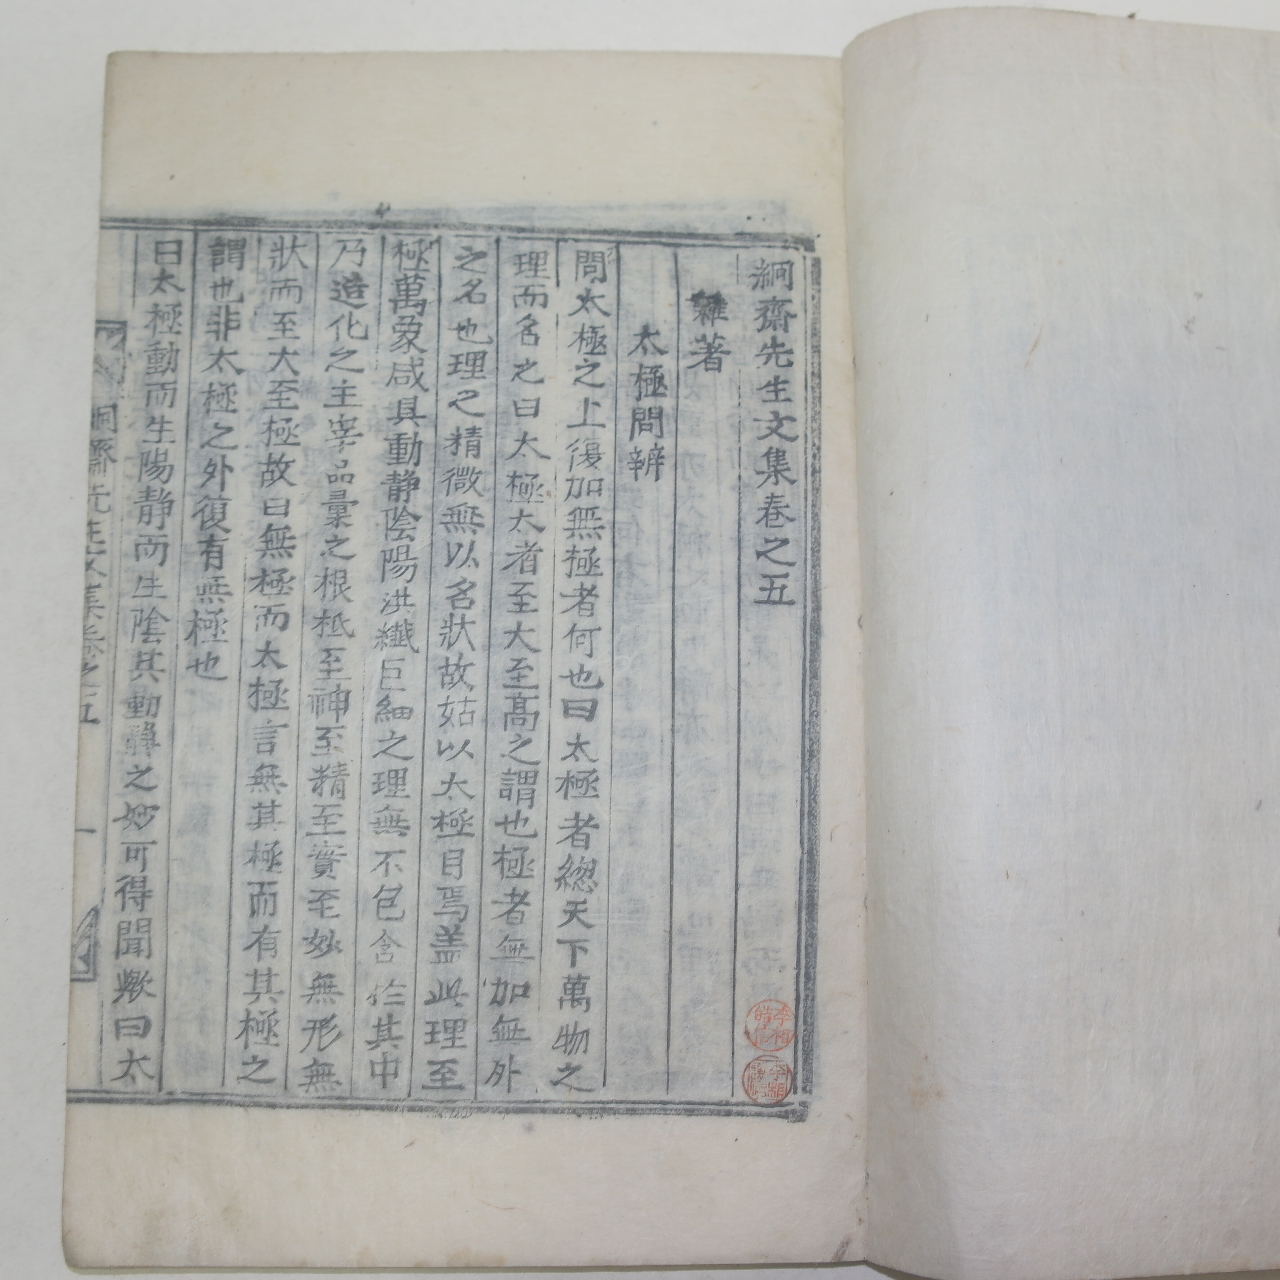 絅齋先生文集卷之五
雜著
太極問辨
問太極之上復加無極者何也曰太極者總天下萬物之
理而名之曰太極太者至大至高之謂也極者無加無外
之名也理之精微無以名狀故姑以太極目焉盖此理至
極萬象咸具動靜陰陽洪纖巨細之理無不包含於其中
乃造化之主宰品彙之根柢至神至精至實至妙無形無
狀而至大至極故曰無極而太極言無其極而有其極之
謂也非太極之外復有無極也
曰太極動而生陽靜而生陰其動靜之妙可得聞歟曰太
絅齋先生文集卷之五
一